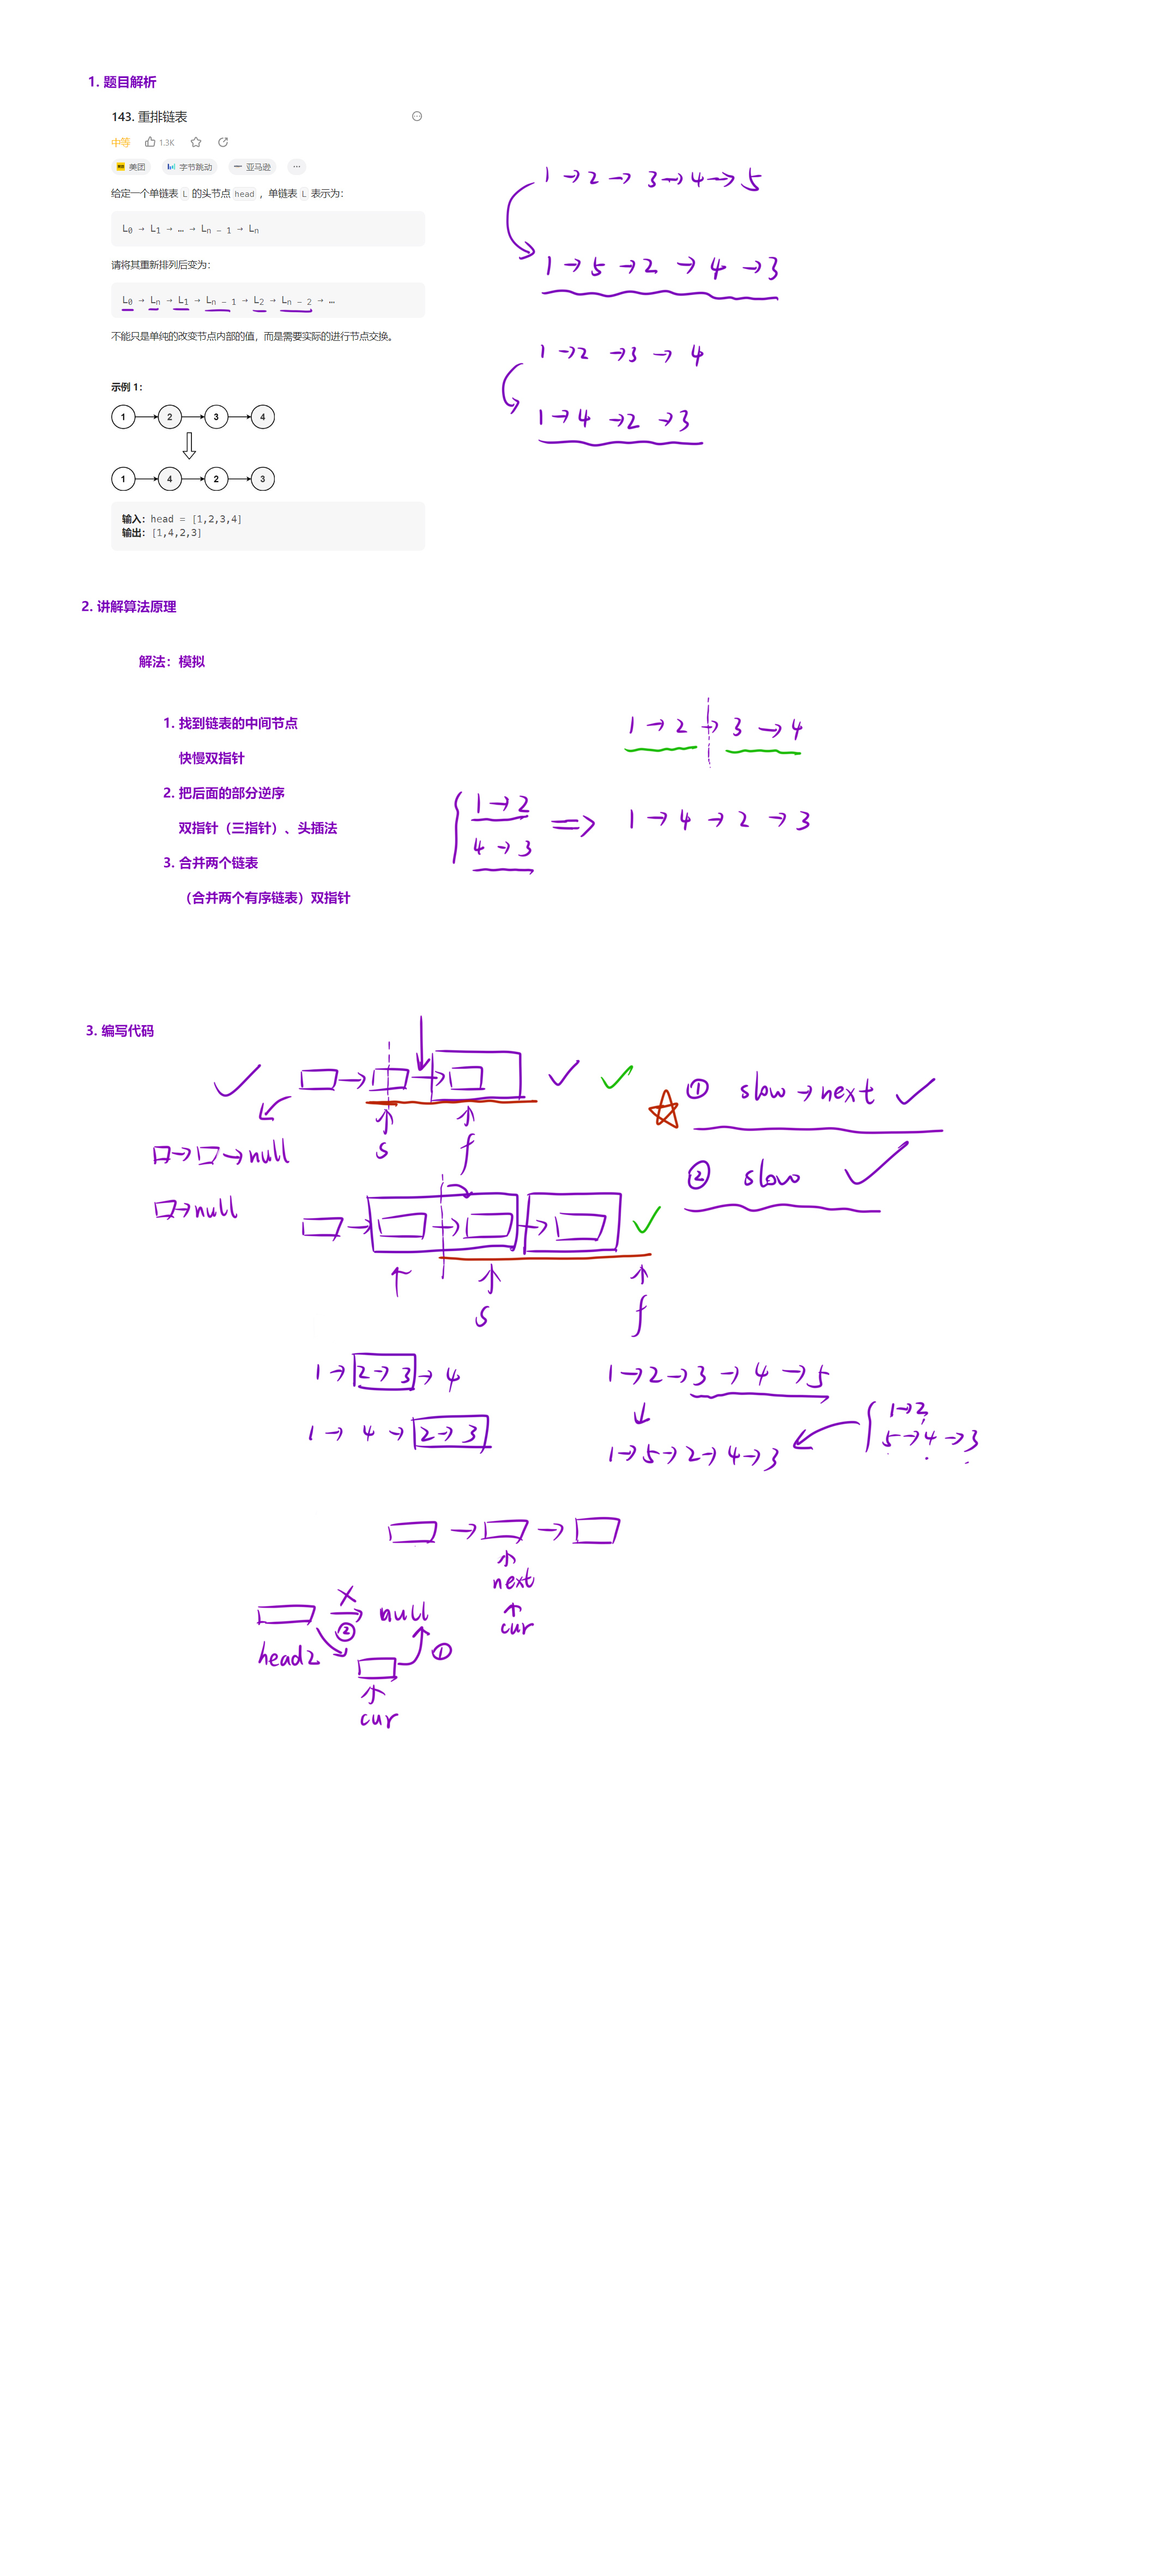 1. 题目解析
143. 重排链表
中等 1.3K
美团 字节跳动 亚马逊 ...
给定一个单链表 L 的头节点 head ，单链表 L 表示为：
L0 → L1 → … → Ln - 1 → Ln
请将其重新排列后变为：
L0 → Ln → L1 → Ln - 1 → L2 → Ln - 2 → …
不能只是单纯的改变节点内部的值，而是需要实际的进行节点交换。
示例 1：
1 2 3 4
1 4 2 3
输入：head = [1,2,3,4]
输出：[1,4,2,3]
1 → 2 → 3 → 4 → 5
1 → 5 → 2 → 4 → 3
1 → 2 → 3 → 4
1 → 4 → 2 → 3
2. 讲解算法原理
解法：模拟
1. 找到链表的中间节点
快慢双指针
2. 把后面的部分逆序
双指针（三指针）、头插法
3. 合并两个链表
（合并两个有序链表）双指针
1 → 2 → 3 → 4
1 → 2
4 → 3
⇒ 1 → 4 → 2 → 3
3. 编写代码
s f
→ → null
→ null
① slow → next
② slow
s f
1 → 2 → 3 → 4
1 → 4 → 2 → 3
1 → 2 → 3 → 4 → 5
1 → 5 → 2 → 4 → 3
1 → 2
5 → 4 → 3
next
cur
null
② ①
head2
cur